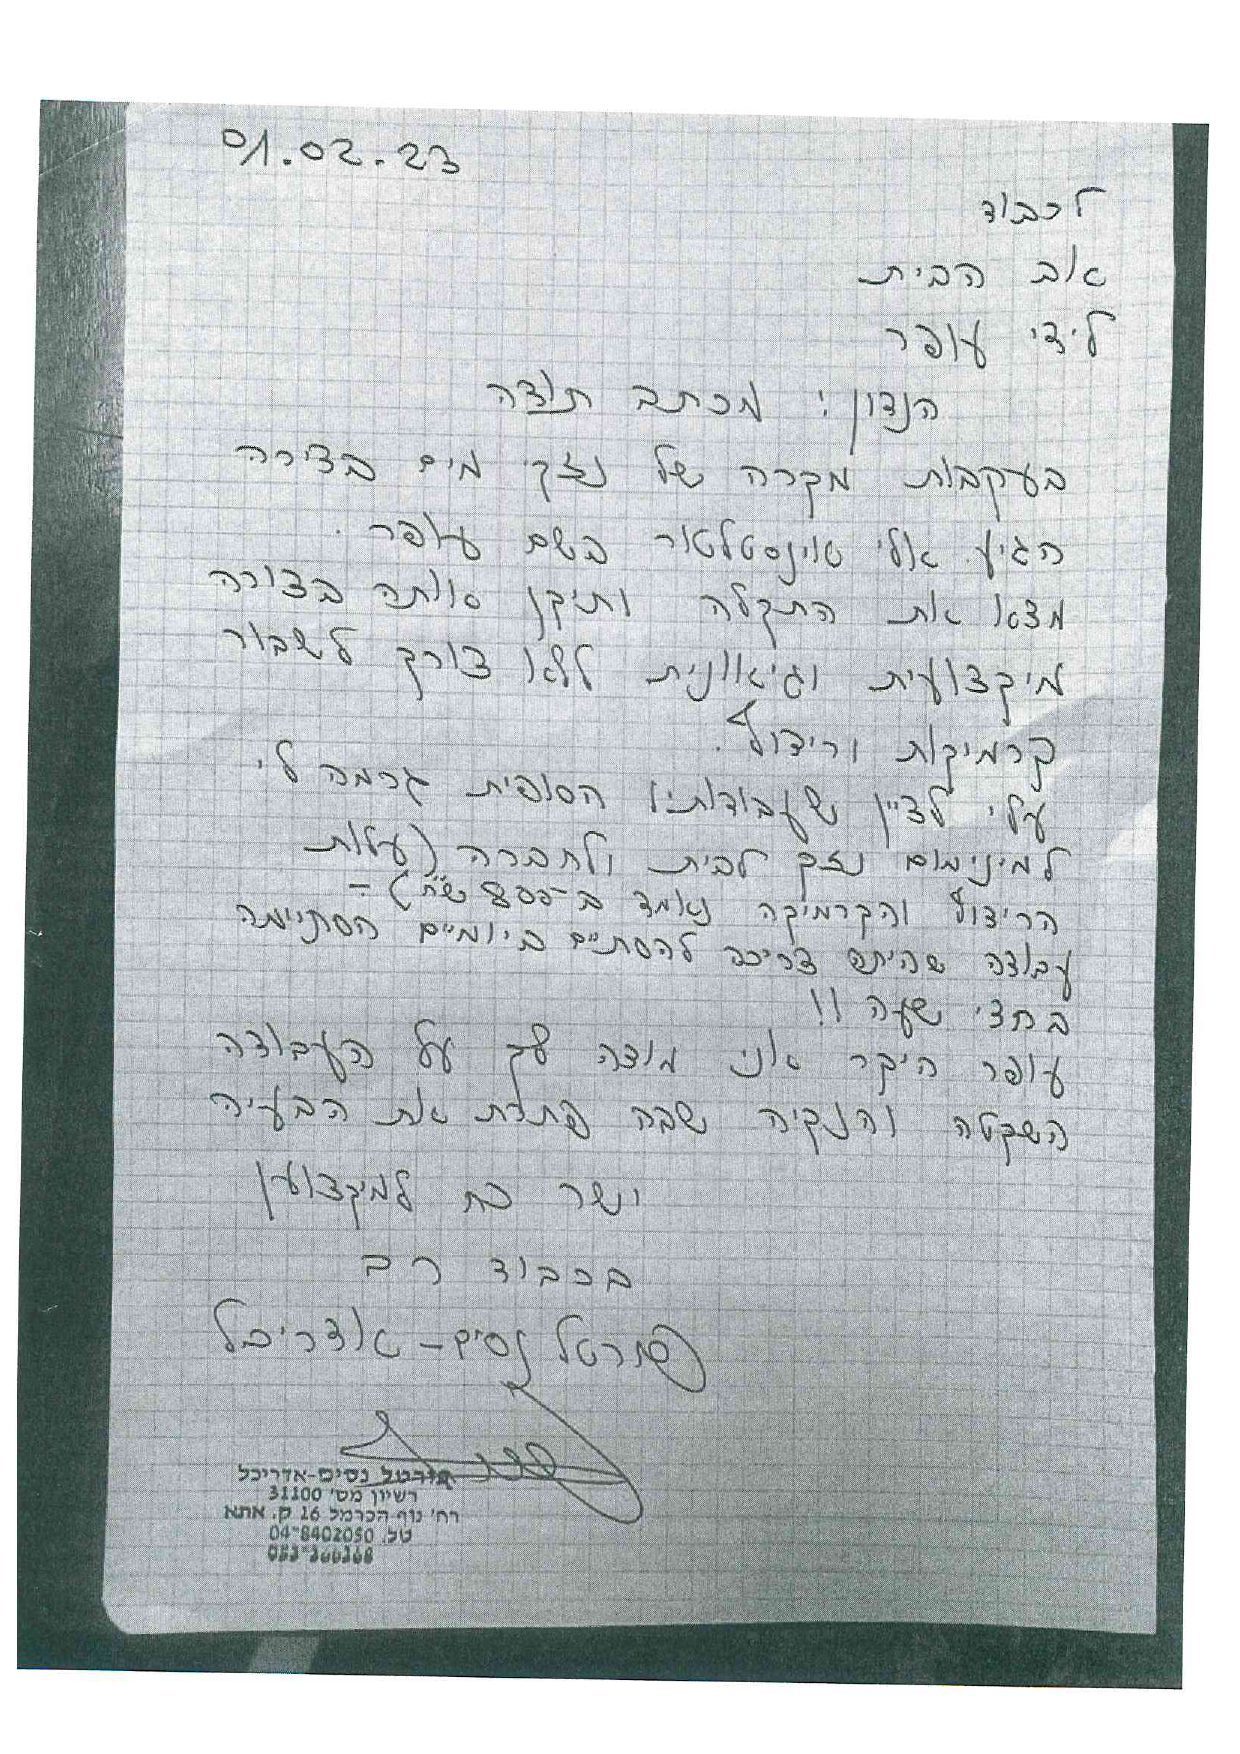 01.02.23
לכבוד
אב הבית
לידי עופר
הנדון: מכתב תודה
בעקבות מקרה של נזק מים בדירה
הגיע אלי אינסטלטור בשם עופר.
מצא את התקלה ותיקן אותה בצורה
מיקצועית וגיאונית ללא צורך לשבור
קרמיקות וריצוף.
עלי לציין שעבודתיו הסופית גרמה לי
למינימום נזק לבית ולחברה (עלות
הריצוף והקרמיקה נאמד ב- שח) -
עבודה שהיתה צריכה להסתיים ביומיים הסתיימה
בחצי שעה !!
עופר היקר אני מודה לך על העבודה
השקטה והנקיה שבה פתרת את הבעיה
וישר כח למיקצוען
בכבוד רב
פורטל נסים - אדריכל
פורטל נסים-אדריכל
רשיון מס' 31100
רח' נוף הכרמל 16 ק. אתא
טל. 04-8402050